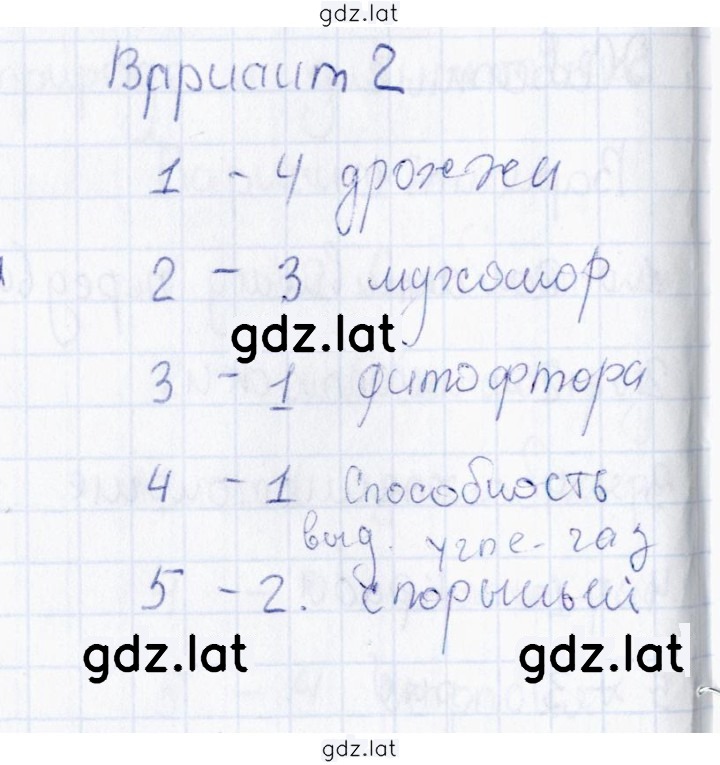 gdz.lat
Вариант 2
1 - 4 дрожжи
2 - 3 мухомор
gdz.lat
3 - 1 фитофтора
4 - 1 Способность
выд. угле-газ
5 - 2. спорыньей
gdz.lat gdz.lat
gdz.lat